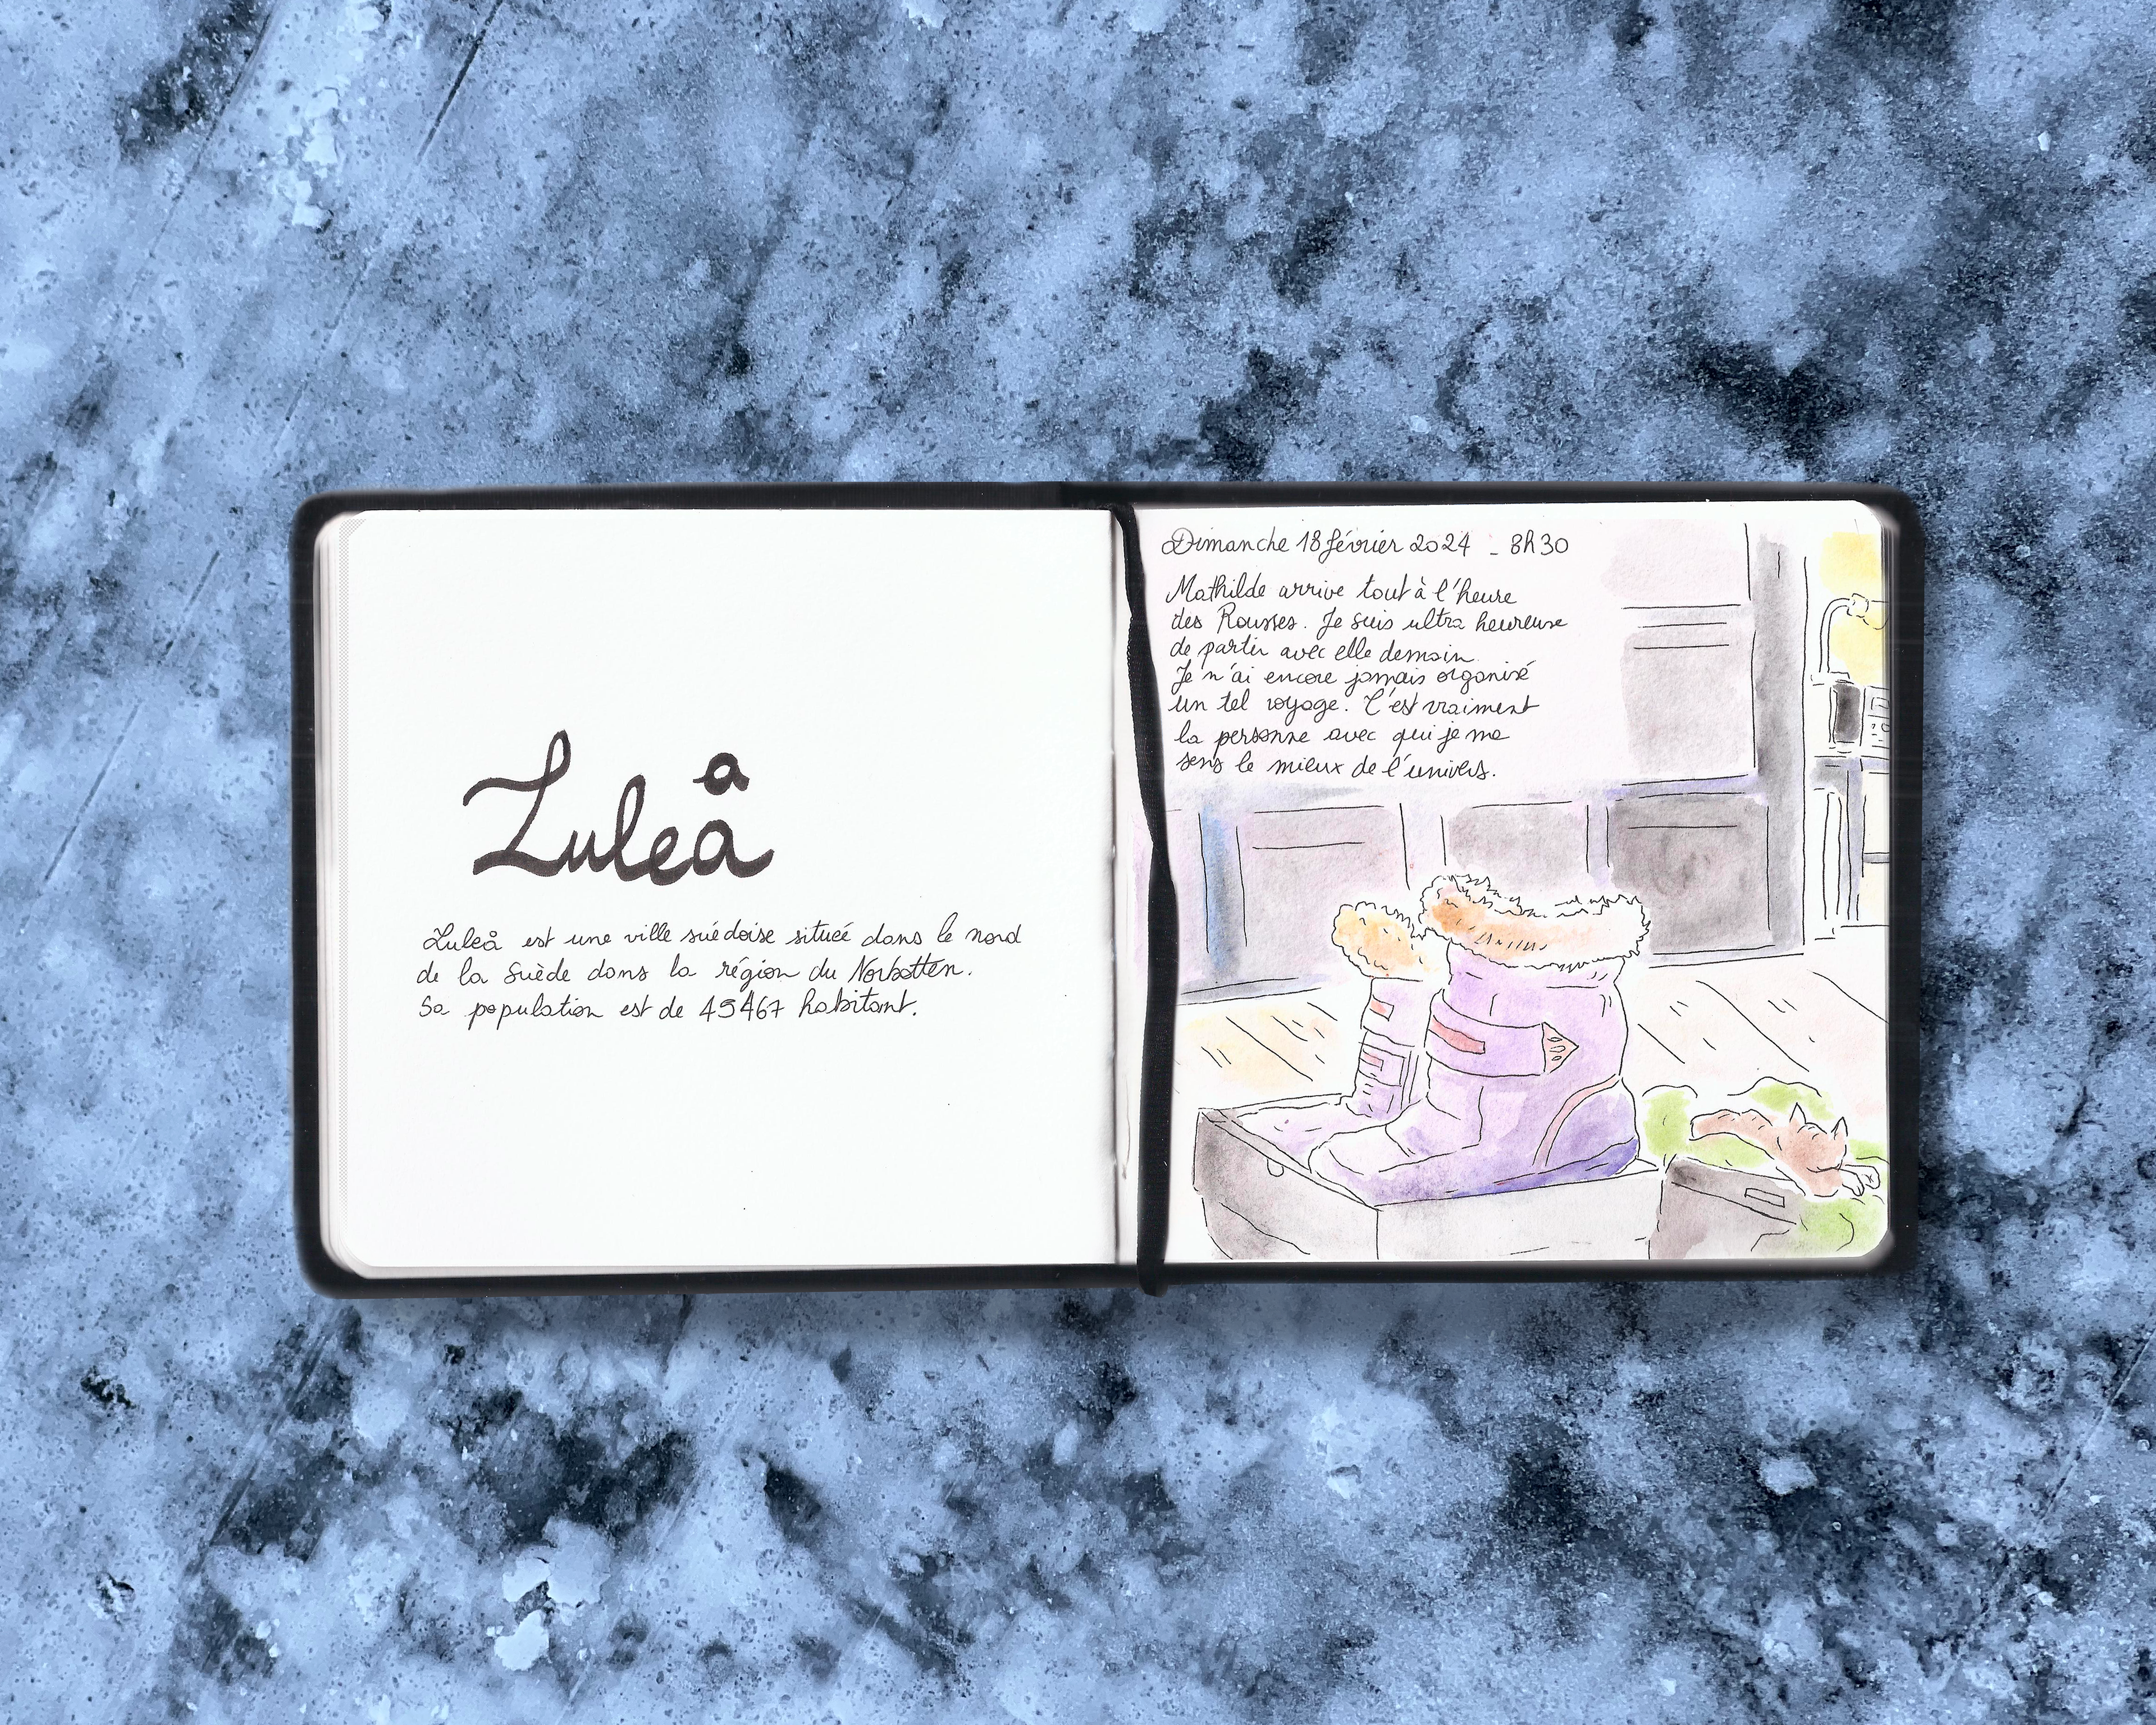 Luleå
Luleå est une ville suédoise située dans le nord
de la Suède dans la région du Norbotten.
Sa population est de 49467 habitant.
Dimanche 18 février 2024 - 8h30
Mathilde arrive tout à l'heure
des Rousses. Je suis ultra heureuse
de partir avec elle demain.
Je n'ai encore jamais organisé
un tel voyage. C'est vraiment
la personne avec qui je me
sens le mieux de l'univers.